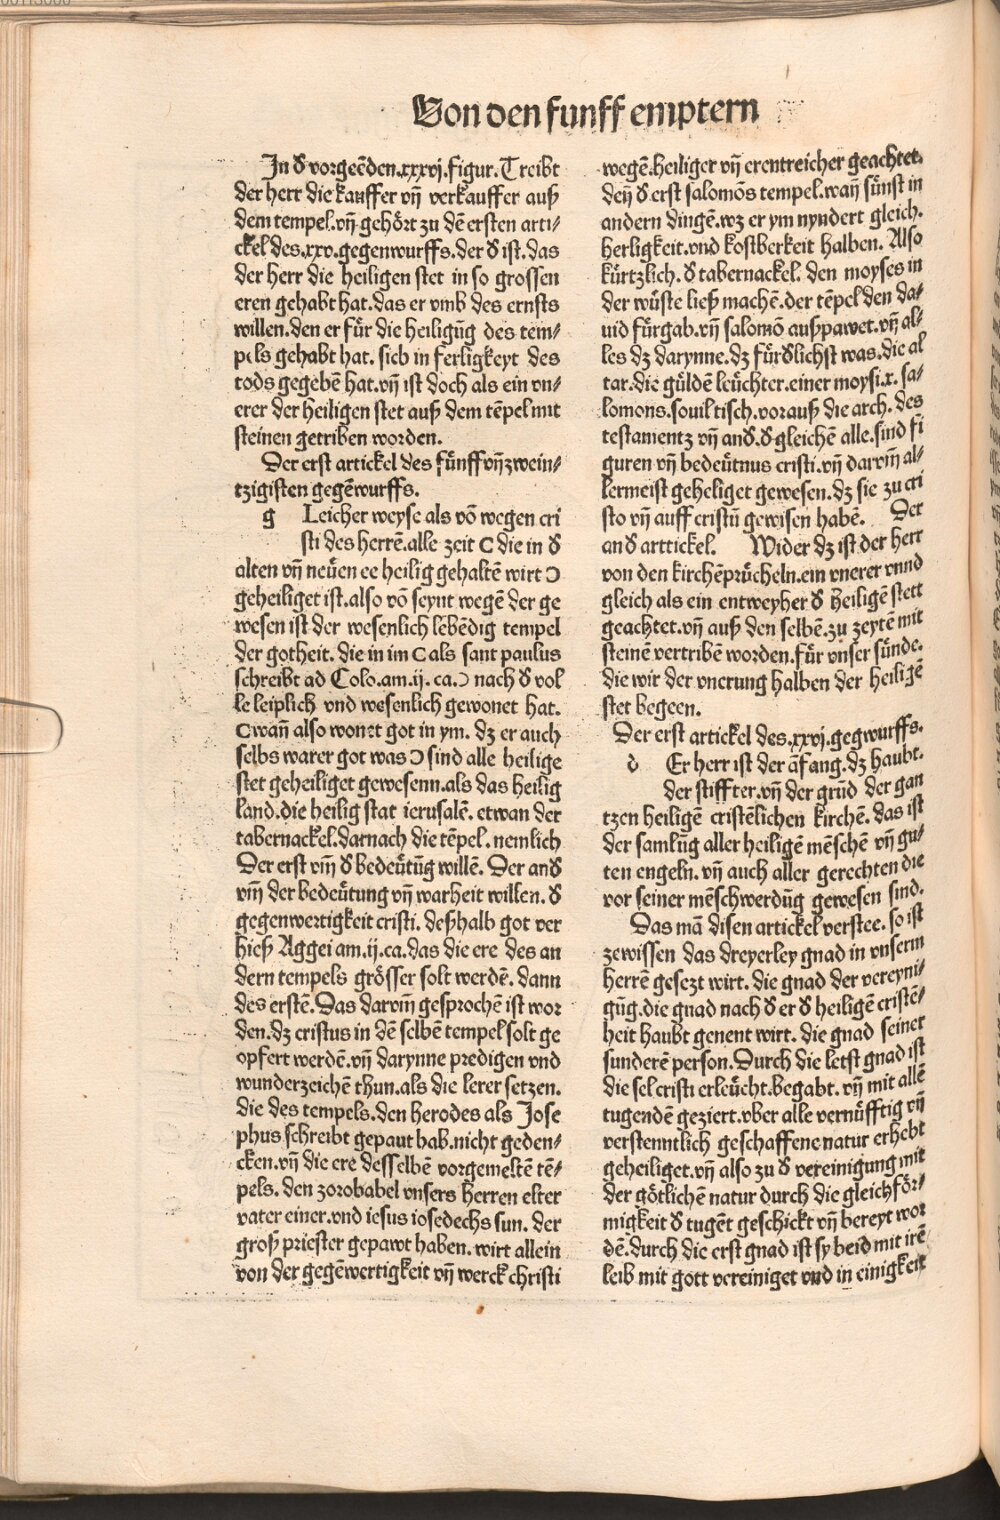 Von den funff emptern
In đ vorgeēden.xxxvj.figur.Treibt
der herr die kauffer vñ verkauffer auß
dem tempel.vñ gehört zu dē ersten arti⸗
ckel des.xxv.gegenwurffs.der đ ist.das
der herr die heiligen stet in so grossen
eren gehabt hat.das er vmb des ernsts
willen.den er für die heiligūg des tem⸗
pels gehabt hat. sich in ferligkeyt des
tods gegebē hat.vñ ist doch als ein vn⸗
erer der heiligen stet auß dem tēpel mit
steinen getriben worden.
Der erst artickel des fünff vñ zwein⸗
tzigisten gegēwurffs.
g Leicher weyse als vō wegen cri
sti des herrē.alle zeit C die in đ
alten vñ neüen ee heilig gehaltē wirt Ɔ
geheiliget ist.also vō seynt wegē der ge
wesen ist der wesenlich lebēdig tempel
der gotheit. die in im C als sant paulus
schreibt ad Colo.am.ij.ca.Ɔ nach đ vol
le leiplich vnd wesenlich gewonet hat.
C wañ also wonet got in ym. dz er auch
selbs warer got was Ɔ sind alle heilige
stet geheiliget gewesenn.als das heilig
land.die heilig stat ierusalē. etwan der
tabernackel.darnach die tēpel. nemlich
Der erst vm̄ đ bedeütūg willē. Der anđ
vm̄ der bedeütung vñ warheit willen. đ
gegenwertigkeit cristi. deßhalb got ver
hieß Aggei am.ij.ca.das die ere des an
dern tempels grösser solt werdē. dann
des erstē. Das darvm̄ gesprochē ist wor
den.dz cristus in dē selbē tempel solt ge
opfert werdē.vñ darynne predigen vnd
wunderzeichē thun.als die lerer setzen.
die des tempels.den herodes als Jose
phus schreibt gepaut hab.nicht geden⸗
cken.vñ die ere desselbē vorgemeltē tē⸗
pels. den zorobabel vnsers herren elter
vater einer.vnd iesus iosedechs sun. der
groß priester gepawt haben. wirt allein
von der gegēwertigkeit vñ werck christi
wegē.heiliger vñ erentreicher geachtet.
deñ đ erst salomōs tempel.wañ sünst in
andern dingē.wz er ym nyndert gleich.
herligkeit.vnd kostberkeit halben. Also
kürtzlich. đ tabernackel. den moyses in
der wüste ließ machē.der tēpel den da⸗
uid fürgab.vñ salomō außpawet.vñ al⸗
les dz darynne.dz fürđlichst was.die al
tar.die güldē leüchter.einer moysi.x. sa⸗
lomons.souil tisch.vorauß die arch. des
testamentz vñ anđ.đ gleichē alle.sind fi
guren vñ bedeütnus cristi.vñ darvm̄ al⸗
lermeist geheliget gewesen.dz sie zu cri
sto vñ auff cristū gewisen habē. Der
anđ arttickel. Wider dz ist der herr
von den kirchēprücheln.ein vnerer vnnd
gleich als ein entweyher đ heiligē stett
geachtet.vñ auß den selbē.zu zeytē mit
steinē vertribē worden.für vnser sünde.
die wir der vnerung halben der heiligē
stet begeen.
Der erst artickel des.xxvj.gegwurffs.
d Er herr ist der āfang.dz haubt.
der stiffter.vñ der grūd der gan
tzen heiligē cristēlichen kirchē. das ist
der samlūg aller heiligē mēschē vñ gu⸗
ten engeln. vñ auch aller gerechten die
vor seiner mēschwerdūg gewesen sind.
Das mā disen artickel verstee. so ist
zewissen das dreyerley gnad in vnserm
herrē gesezt wirt. die gnad der vereyni⸗
gūg.die gnad nach đ er đ heiligē cristē⸗
heit haubt genent wirt. die gnad seiner
sunderē person. Durch die letst gnad ist
die sel cristi erleücht.begabt. vñ mit allē
tugendē geziert.vber alle vernüfftig vñ
verstenntlich geschaffene natur erhebt
geheiliget.vñ also zu đ vereinigung mit
der götlichē natur durch die gleichför⸗
migkeit đ tugēt geschickt vñ bereyt wor
dē.durch die erst gnad ist sy beid mit irē
leib mit gott vereiniget vnd in einigkeit